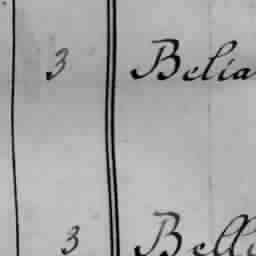 3 Belia
3 Belle